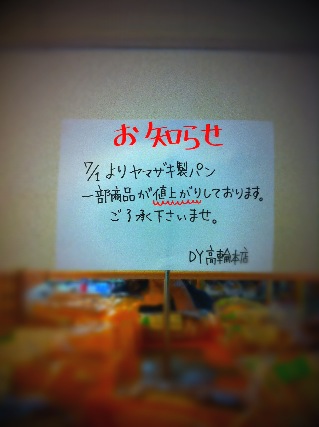 お知らせ
7/1よりヤマザキ製パン
一部商品が値上がりしております。
ご了承下さいませ。
DY高輪本店